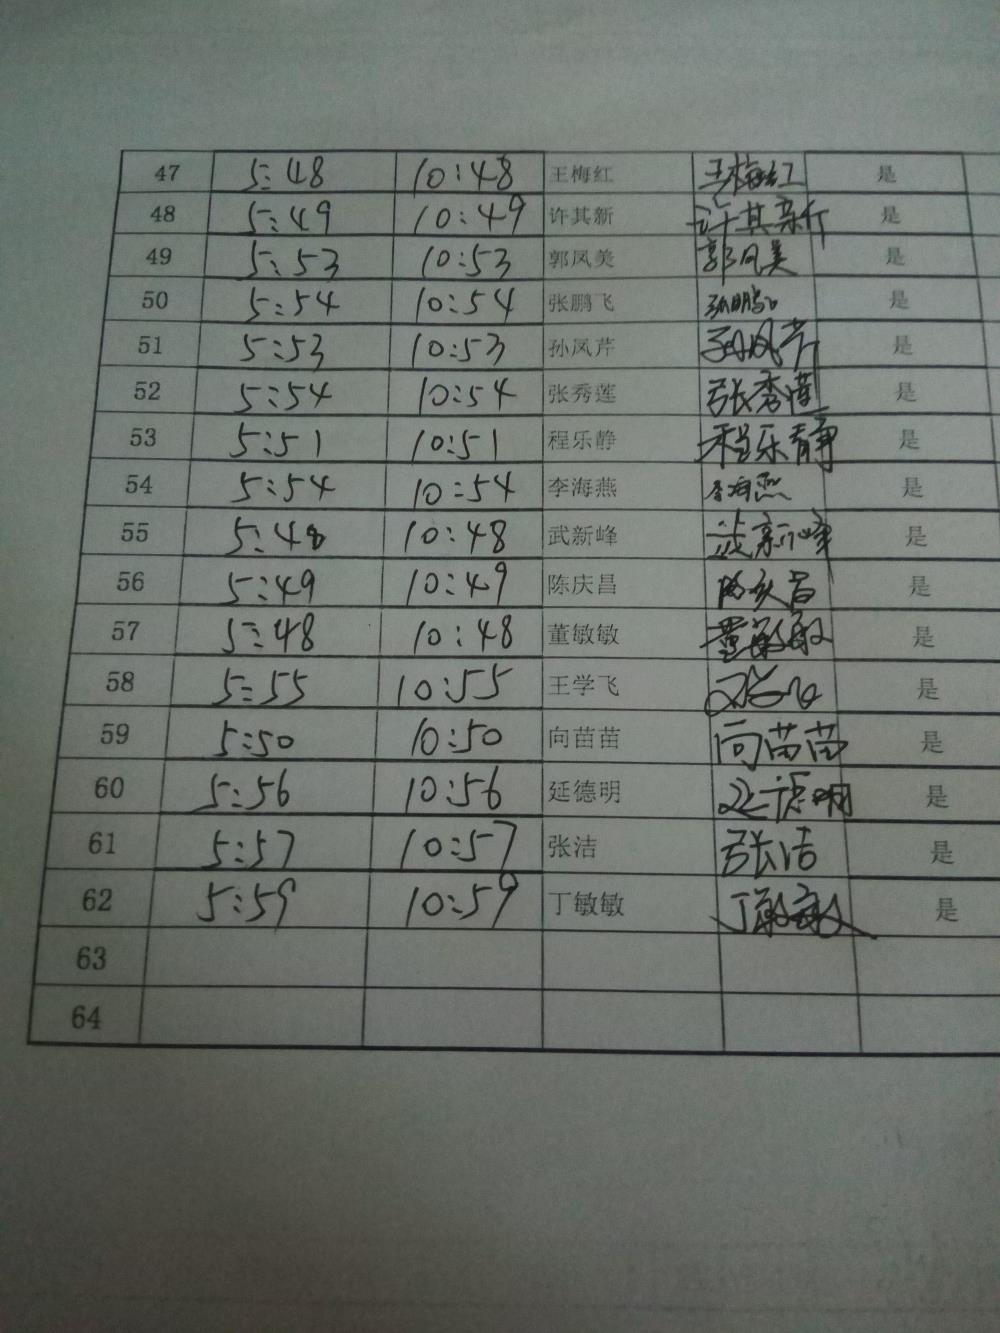 47 5:48 10:48 王梅红 王梅红 是
48 5:49 10:49 许其新 许其新 是
49 5:53 10:53 郭凤美 郭凤美 是
50 5:54 10:54 张鹏飞 是
51 5:53 10:53 孙凤芹 孙凤芹 是
52 5:54 10:54 张秀莲 张秀莲 是
53 5:51 10:51 程乐静 程乐静 是
54 5:54 10:54 李海燕 李海燕 是
55 5:48 10:48 武新峰 武新峰 是
56 5:49 10:49 陈庆昌 陈庆昌 是
57 5:48 10:48 董敏敏 董敏敏 是
58 5:55 10:55 王学飞 是
59 5:50 10:50 向苗苗 向苗苗 是
60 5:56 10:56 延德明 延德明 是
61 5:57 10:57 张洁 张洁 是
62 5:59 10:59 丁敏敏 丁敏敏 是
63
64